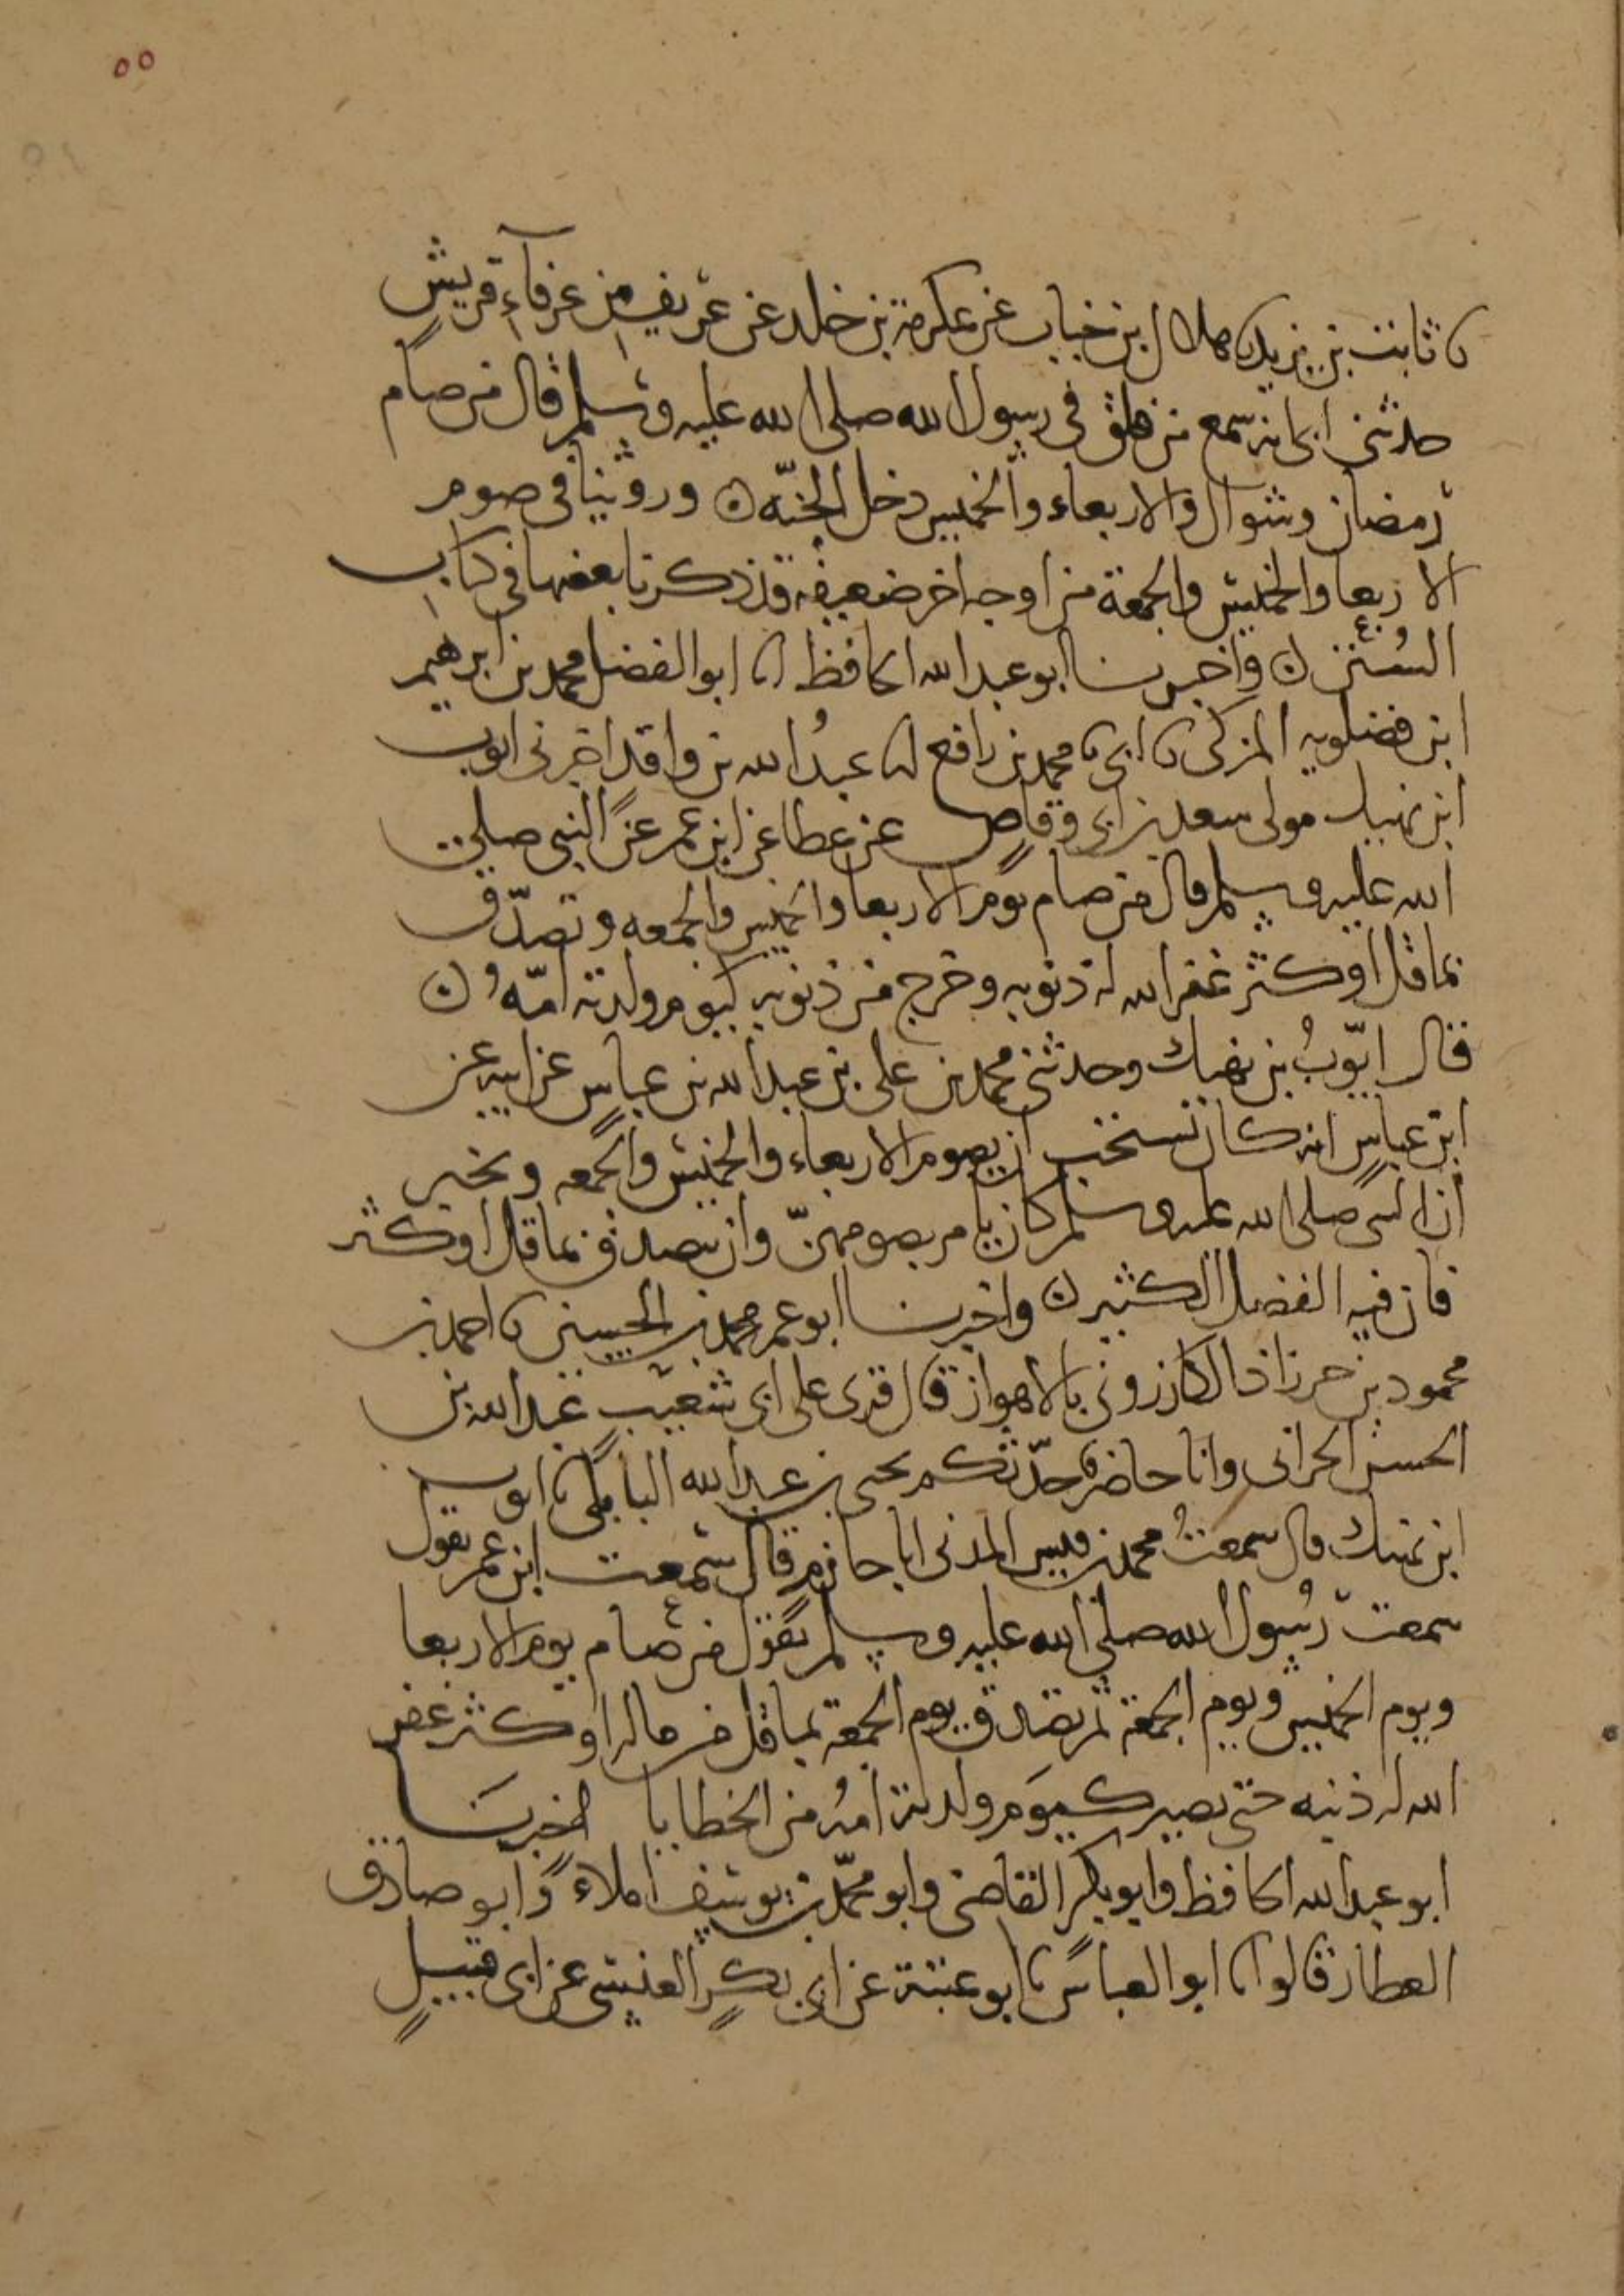 ٥٥
نا ثابت بن يزيد نا هلال بن خباب عن عكرمة بن خلد عن عريف من عرفاء قريش
حدثني ابي انه سمع من فلق في رسول الله صلى الله عليه وسلم قال من صام
رمضان وشوال والاربعاء والخميس دخل الجنة ه وروينا في صوم
الاربعا والخميس والجمعة من اوجه اخر ضعيفه قد ذكرنا بعضها في كتاب
السنن ه واخبرنا ابو عبد الله الحافظ انا ابو الفضل محمد بن ابرهيم
ابن فضلويه المزكي نا ابي نا محمد بن رافع نا عبد الله بن واقد اخبرني ايوب
ابن نهيك مولى سعد بن ابي وقاص عن عطا عن ابن عمر عن النبي صلى
الله عليه وسلم قال من صام يوم الاربعا والخميس والجمعه وتصدق
بما قل او كثر غفر الله له ذنوبه وخرج من ذنوبه كيوم ولدته امه ه
قال ايوب بن نهيك وحدثني محمد بن علي بن عبد الله بن عباس عن ابيه عن
ابن عباس انه كان يستحب ان يصوم الاربعاء والخميس والجمعه ويخبر
ان النبي صلى الله عليه وسلم كان يامر بصومهن وان يتصدق بما قل او كثر
فان فيه الفضل الكثير ه واخبرنا ابو عمر محمد بن الحسين نا احمد بن
محمود بن خرزاذ الكازروني بالاهواز قال قرى على ابي شعيب عبد الله بن
الحسن الحراني وانا حاضر حدثكم يحيى بن عبد الله البابلتي نا ايوب
ابن نهيك قال سمعت محمد بن قيس المدني ابا حازم قال سمعت ابن عمر يقول
سمعت رسول الله صلى الله عليه وسلم يقول من صام يوم الاربعا
ويوم الخميس ويوم الجمعة ثم تصدق يوم الجمعة بما قل من ماله او كثر غفر
الله له ذنبه حتى يصير كيوم ولدته امه من الخطايا اخبرنا
ابو عبد الله الحافظ وابو بكر القاضي وابو محمد بن يوسف املاء وابو صادق
العطار قالوا نا ابو العباس نا ابو عتبة عن ابي بكر العنسي عن ابي قبيل